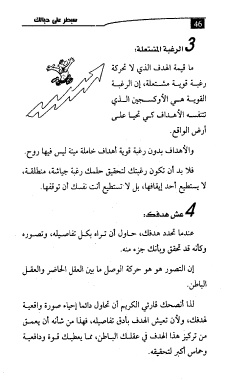 سيطر على حياتك
46
3 الرغبة المشتعلة:
ما قيمة الهدف الذي لا تحركة
رغبة قوية مشتعلة، إن الرغبة
القوية هي الأوكسجين الذي
تتنفسه الأهداف كي تحيا على
أرض الواقع.
والأهداف بدون رغبة قوية أهداف خاملة ميتة ليس فيها روح.
فلا بد أن تكون رغبتك لتحقيق حلمك رغبة جياشة، منطلقة،
لا يستطيع أحد إيقافها، بل لا تستطيع أنت نفسك أن توقفها.
4 عش هدفك:
عندما تحدد هدفك، حاول أن تراه بكل تفاصيله، وتصوره
وكأنه قد تحقق وبأنك جزء منه.
إن التصور هو هو حركة الوصل ما بين العقل الحاضر والعقل
الباطن.
لذا أنصحك قارئي الكريم أن تحاول دائما إحياء صورة واقعية
لهدفك، ولأن تعيش الهدف بأدق تفاصيله، فهذا من شأنه أن يعمق
من تركيز هذا الهدف في عقلك الباطن، مما يعطيك قوة ودافعية
وحماس أكبر لتحقيقه.